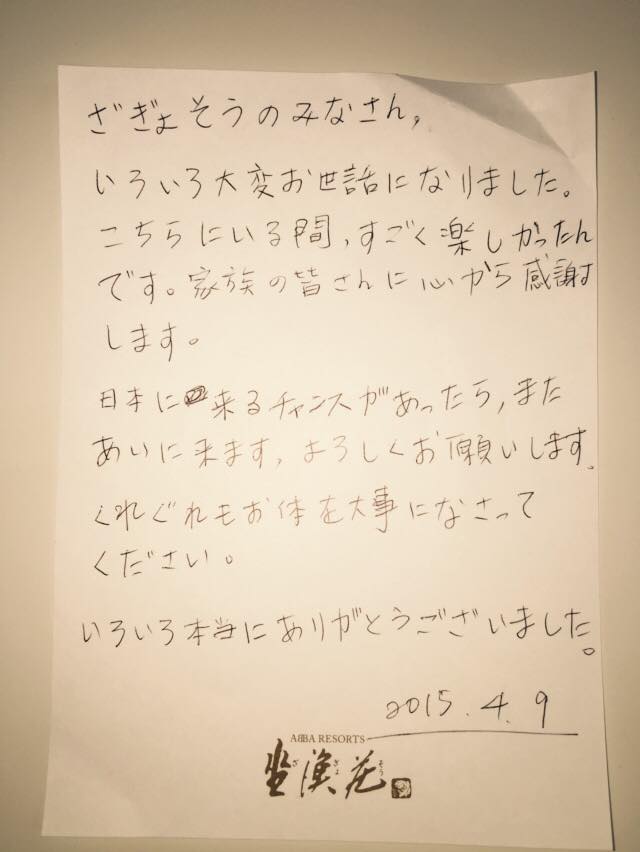 ざぎょそうのみなさん,
いろいろ大変お世話になりました。
こちらにいる間、すごく楽しかったん
です。家族の皆さんに心から感謝
します。
日本に来るチャンスがあったら,また
あいに来ます,よろしくお願いします.
くれぐれもお体を大事になさって
ください。
いろいろ本当にありがとうございました。
2015.4.9
ABBA RESORTS
坐漁荘
ざぎょそう